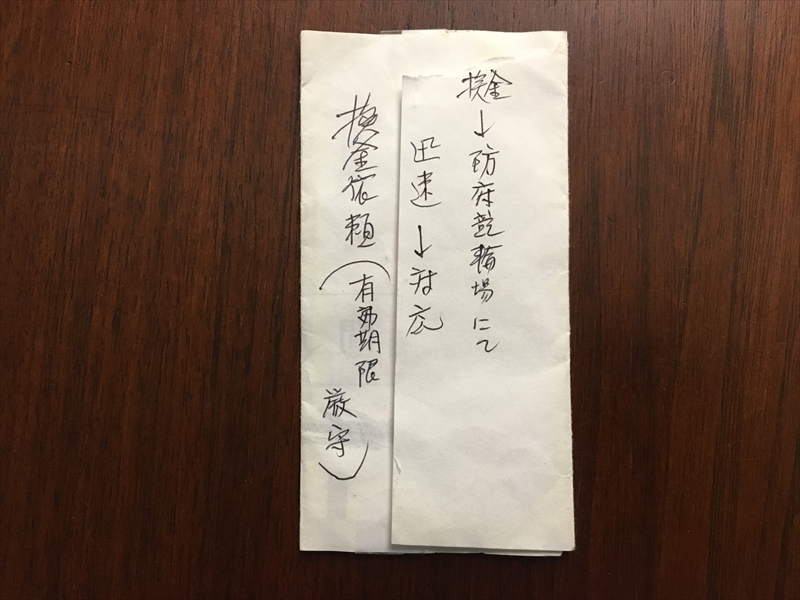 換金→防府競輪場にて
迅速→対応
換金依頼(有効期限
厳守)